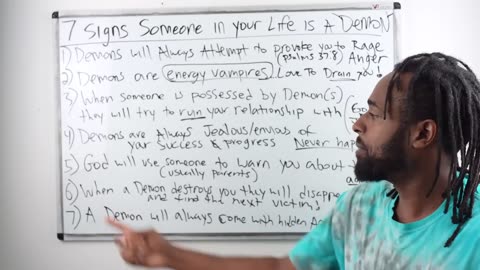 7 Signs Someone in your Life is A Demon
1) Demons will Always Attempt to provoke you to Rage
(psalms 37:8) Anger
2) Demons are energy vampires Love To Drain you!
3) When someone is possessed by Demon(s)
they will try to ruin your relationship with
4) Demons are Always Jealous/envious of
your success & progress Never hap
5) God will use someone to warn you about
(usually parents)
6) When a Demon destroys you they will disapp
and find the next victim!
7) A Demon will always come with hidden